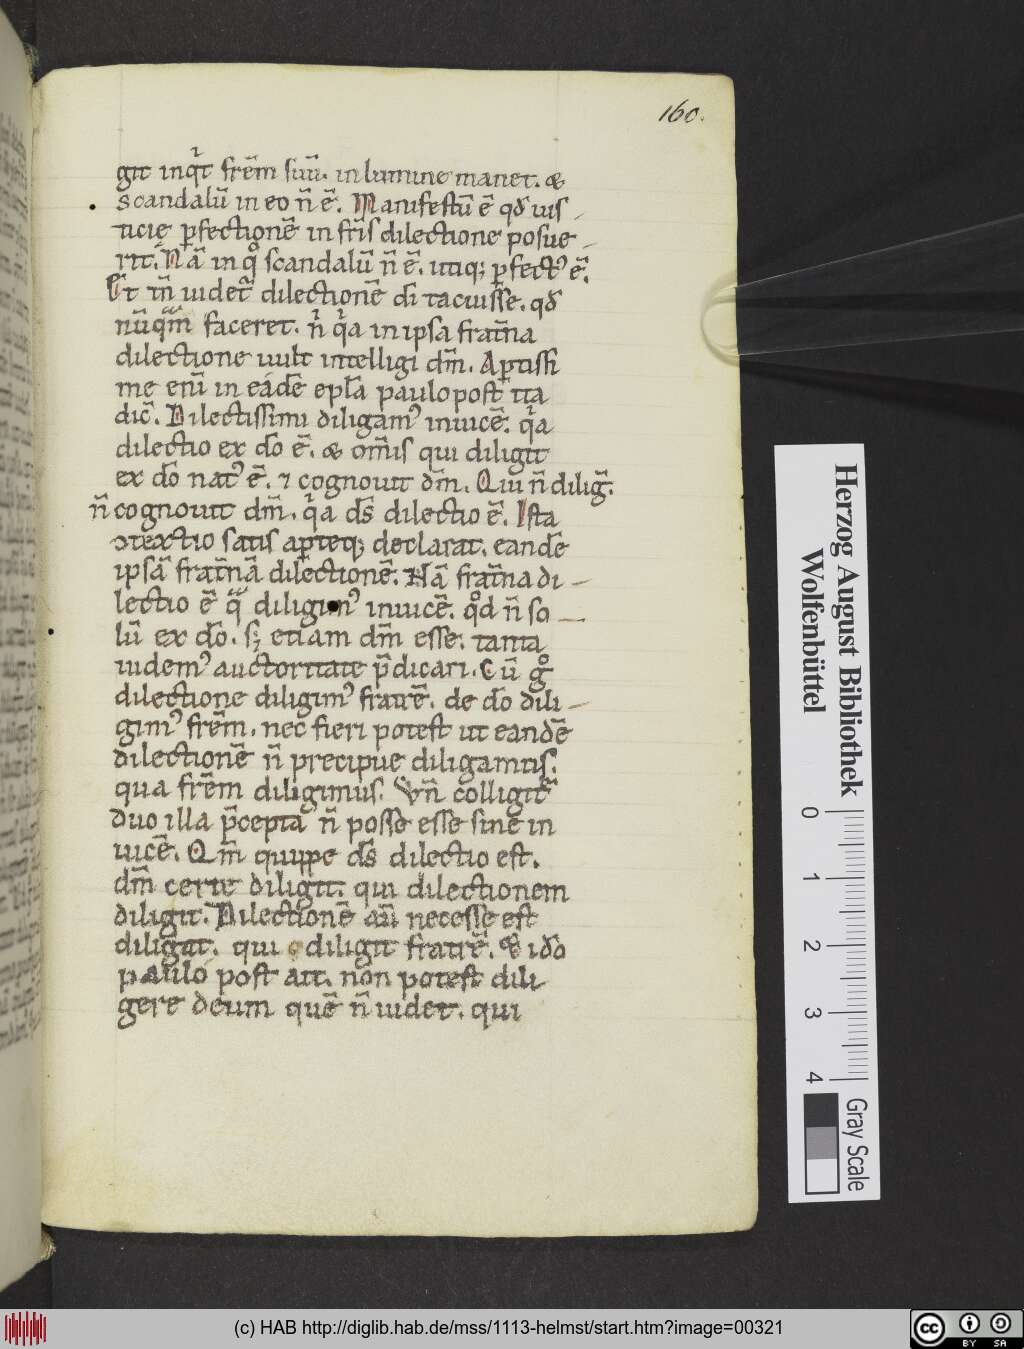 160.
git inqͥt fr̄em suū. in lumine manet. &
scandalū in eo n̄ ē. Manifestū ē qđ iusˍ
ticię ꝑfectionē in fr̄is dilectione posueˍ
rit. Nā in qͦ scandalū n̄ ē. utiq; ꝑfectꝰ ē.
Et tn̄ uidet᷑ dilectionē di tacuisse. qđ
nūqͣm faceret. nͥ qͥa in ipsa frat̄na
dilectione uult intelligi dm̄. Aꝑtissi
me eni̅ in eadē epła paulo post ita
dic̄. Dilectissimi diligamꝰ inuicē. qͥa
dilectio ex do ē. & om̄is qui diligit
ex do natꝰ ē. ⁊ cognouit dm̄. Qui n̄ diliḡ.
n̄ cognouit dm̄. qͥa ds̄ dilectio ē. Ista
ↄtextio satis aꝑteq; declarat. eandē
ipsā frat̄nā dilectionē. Nā frat̄na diˍ
lectio ē qͣ̄ diligimꝰ inuicē. qͦd n̄ soˍ
lū ex do. s; etiam dm̄ esse. tanta
uidemꝰ auctoritate p̄dicari. Cū gͦ
dilectione diligimꝰ fratrē. de do diliˍ
gimꝰ fr̄em. nec fieri potest ut eandē
dilectionē n̄ precipue diligamus.
qua fr̄em diligimus. Vn̄ colligit᷑
duo illa p̄cepta n̄ posse esse sine in
uicē. Qm̄ quippe ds̄ dilectio est.
dm̄ certe diligit. qui dilectionem
diligit. Dilectionē aū necesse est
diligat. qui diligit fratrē. & iđo
paulo post ait. non potest dili
gere deum quē n̄ uidet. qui
Herzog August Bibliothek
Wolfenbüttel
0 1 2 3 4
Gray Scale
(c) HAB http://diglib.hab.de/mss/1113-helmst/start.htm?image=00321
cc BY SA